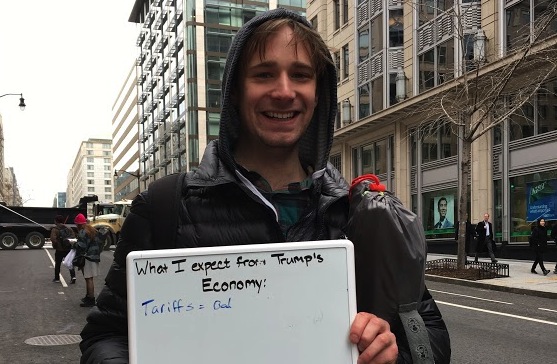 What I expect from Trump's
Economy:
Tariffs = Bad